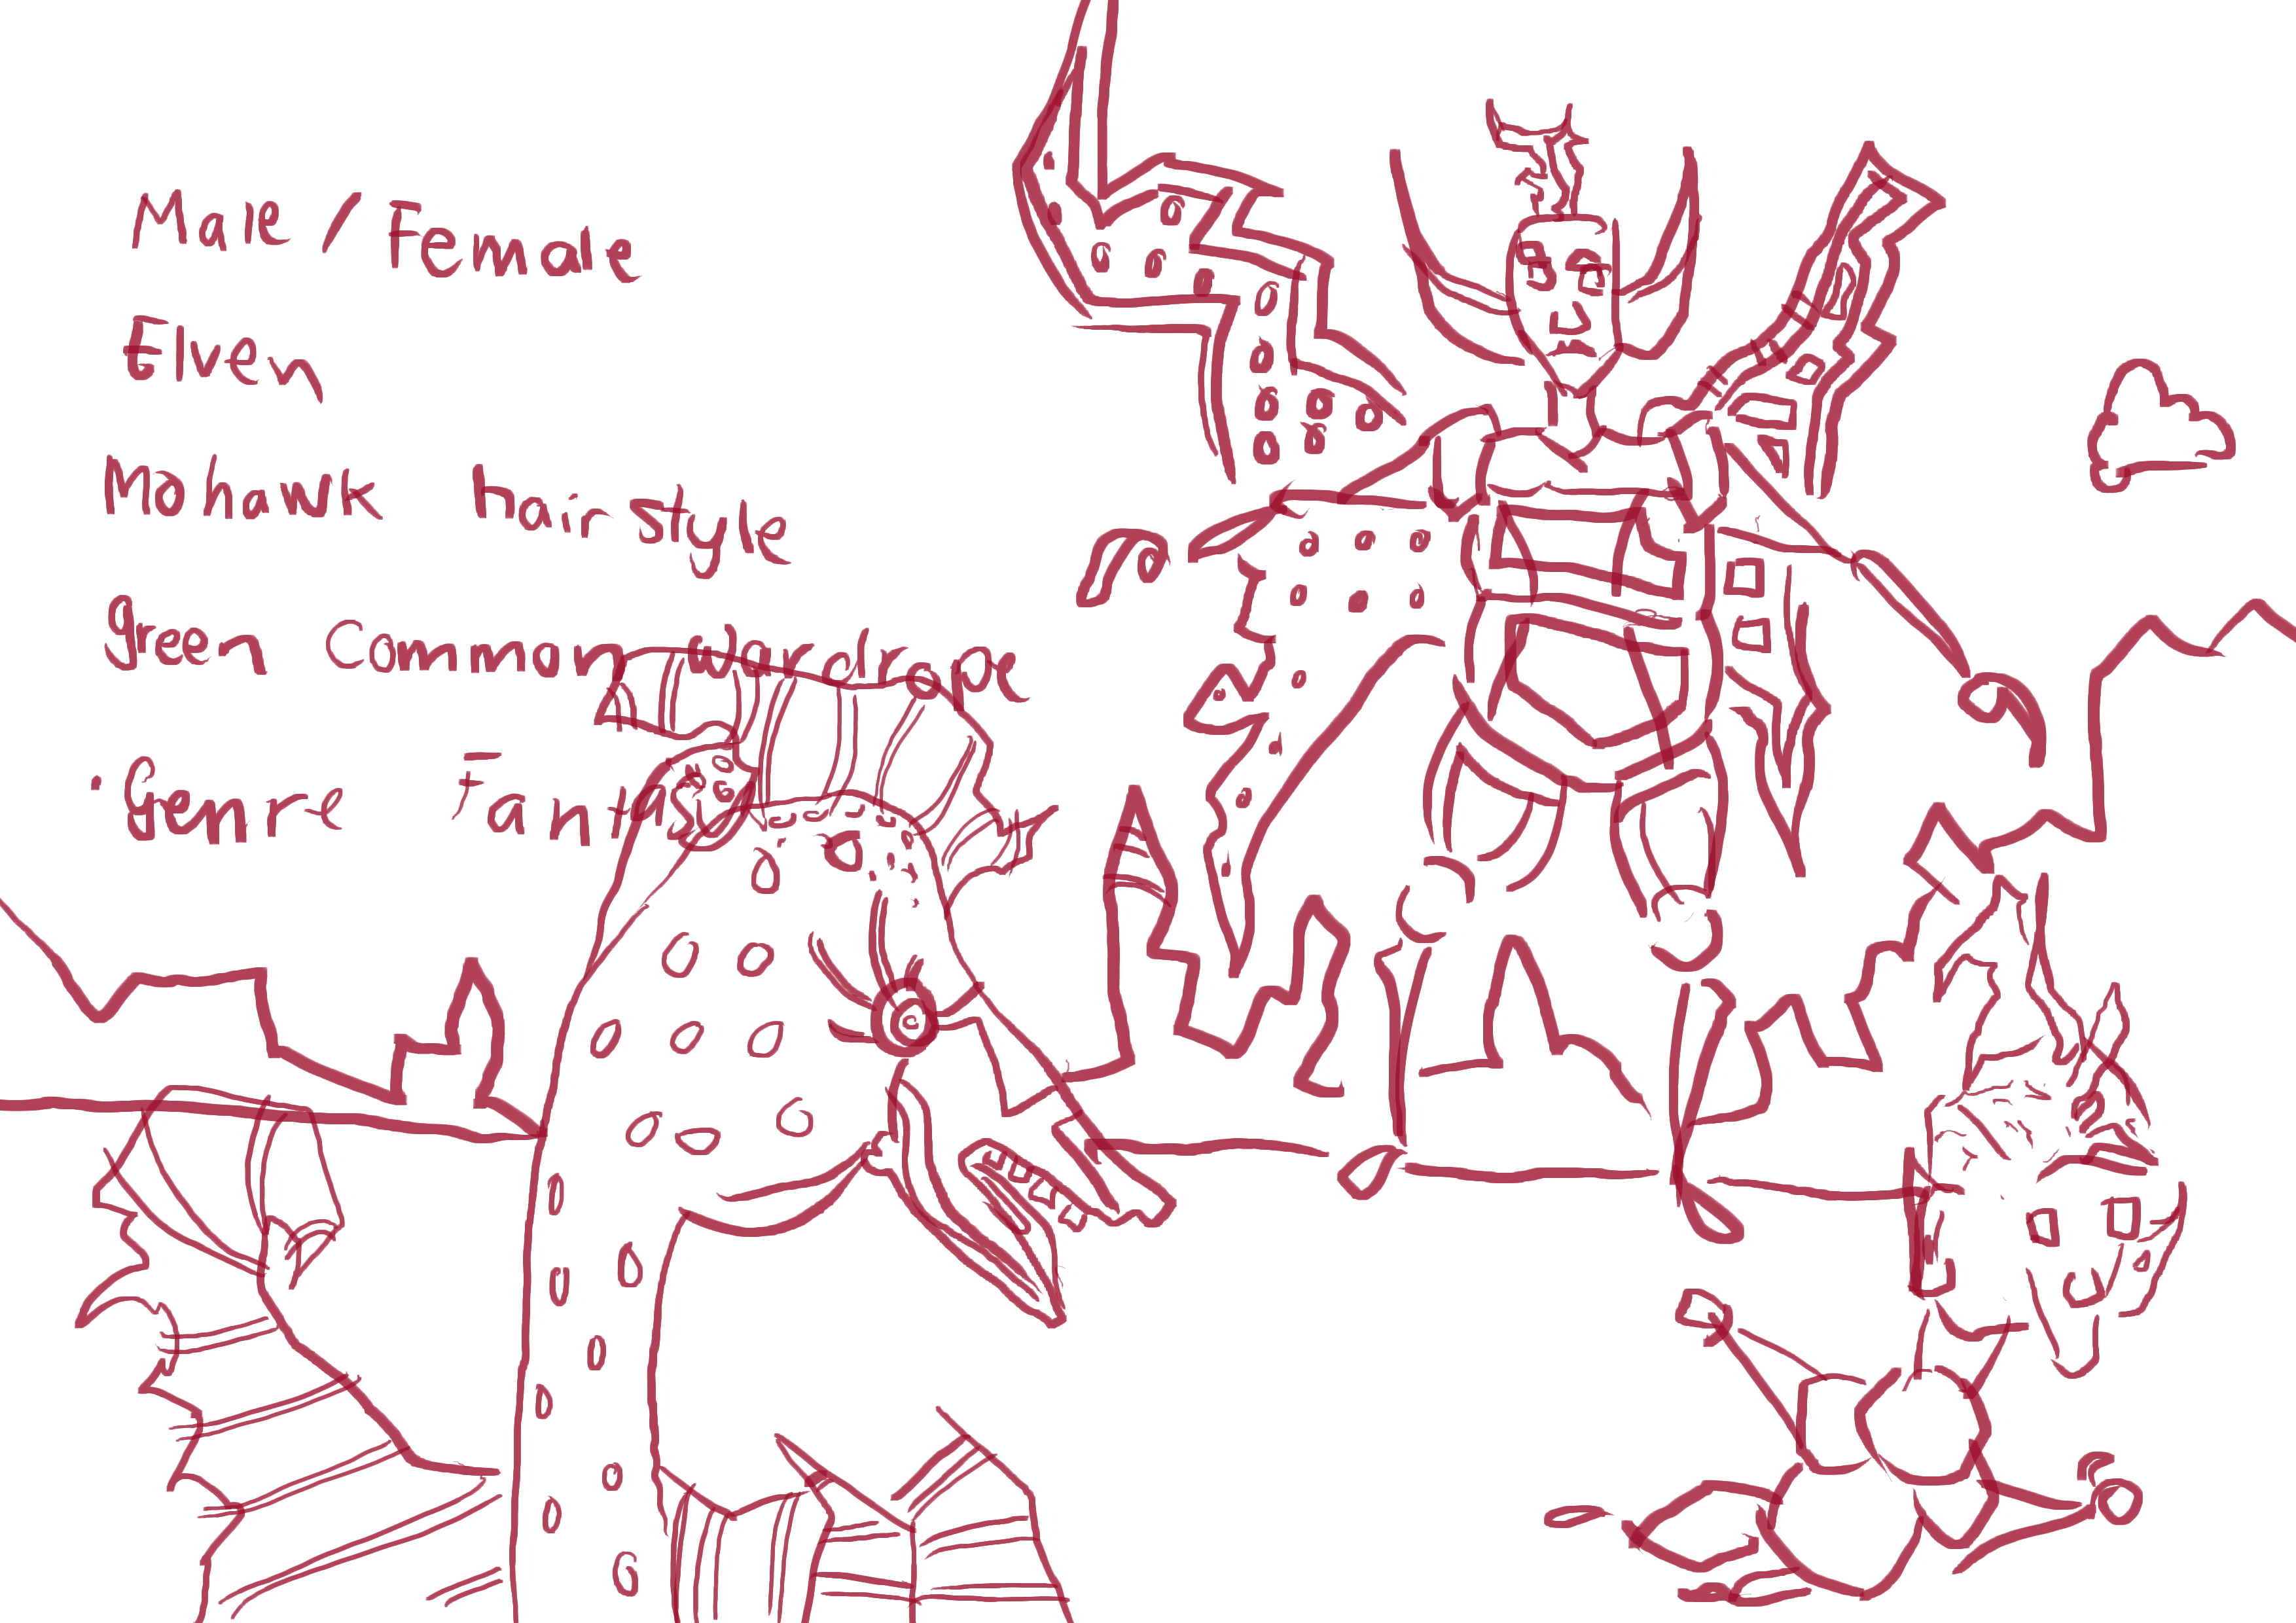 Male / Female
Elven
Mohawk hairstyle
green common wardrope
Genre Fantasy